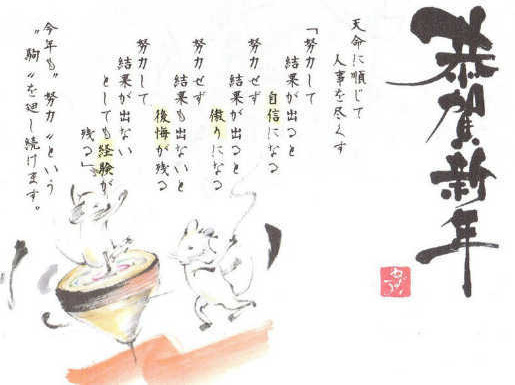 恭賀新年
天命に順じて
人事を尽くす
「努力して
結果が出ると
自信になる
努力せず
結果が出ると
傲りになる
努力せず
結果も出ないと
後悔が残る
努力して
結果が出ない
としても経験が
残る」
今年も〝努力〟という
〝駒〟を廻し続けます。